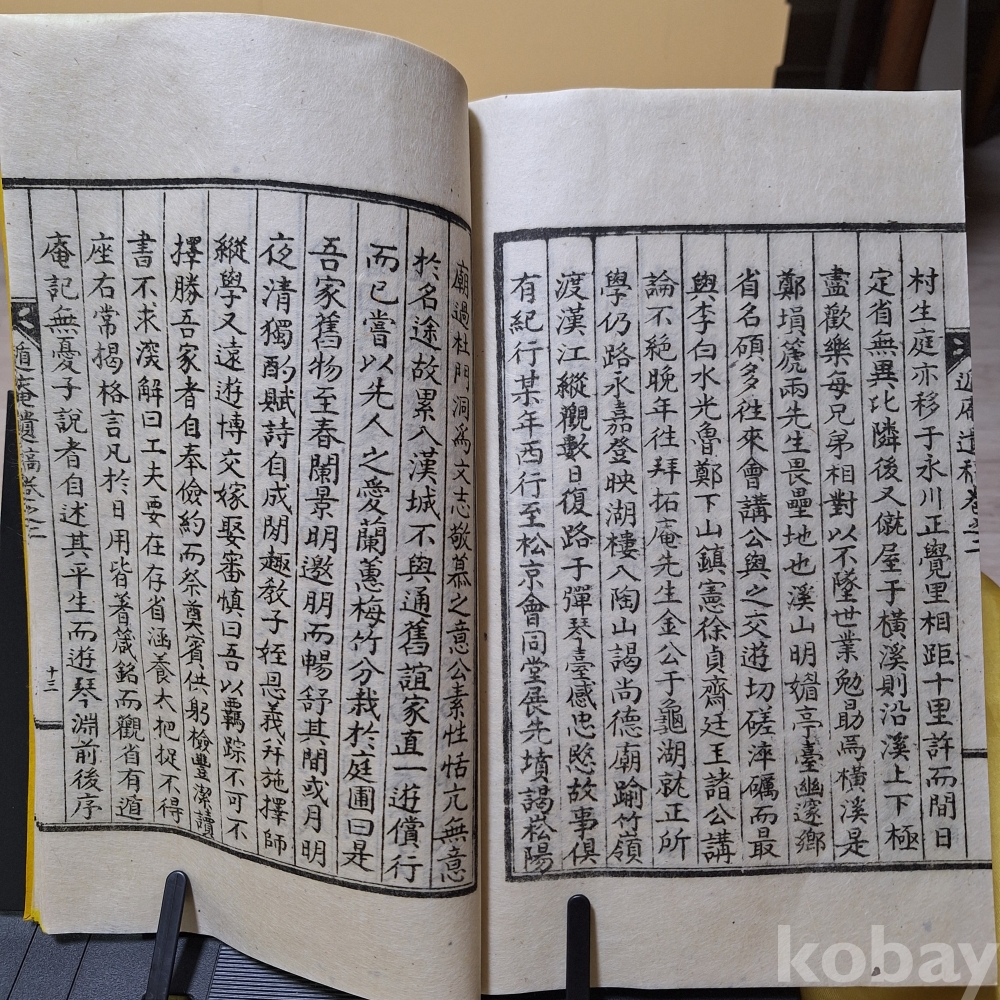 村生庭亦移于永川正覺里相距十里許而間日
定省無異比隣後又僦屋于橫溪則沿溪上下極
盡歡樂每兄弟相對以不墜世業勉勗焉橫溪是
鄭塤篪兩先生畏壘地也溪山明媚亭臺幽邃鄉
省名碩多往來會講公與之交遊切磋淬礪而最
與李白水光魯鄭下山鎮憲徐貞齋廷王諸公講
論不絕晚年往拜拓庵先生金公于龜湖就正所
學仍路永嘉登映湖樓入陶山謁尚德廟踰竹嶺
渡漢江縱觀數日復路于彈琴臺感忠愍故事俱
有紀行某年西行至松京會同堂展先墳謁崧陽
遁庵遺稿卷之二
廟過杜門洞爲文志敬慕之意公素性恬亢無意
於名途故累入漢城不與通舊誼家直一遊償行
而已嘗以先人之愛蘭蕙梅竹分栽於庭圃曰是
吾家舊物至春闌景明邀朋而暢舒其間或月明
夜清獨酌賦詩自成閒趣敎子姪恩義幷施擇師
縱學又遠遊博交嫁娶審慎曰吾以羈踪不可不
擇勝吾家者自奉儉約而祭奠賓供躬檢豐潔讀
書不求深解曰工夫要在存省涵養太把捉不得
座右常揭格言凡於日用皆著箴銘而觀省有遁
庵記無憂子說者自述其平生而遊琴淵前後序
遁庵遺稿卷之二
十三
kobay